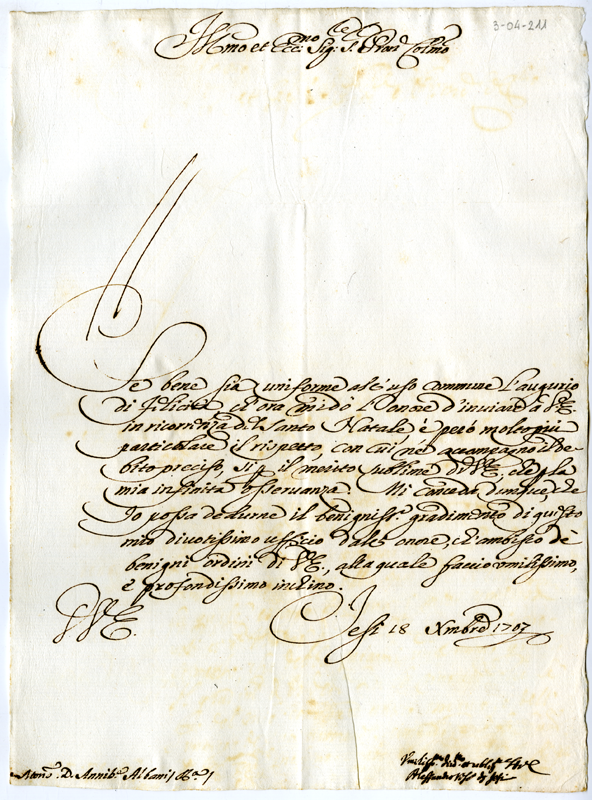 3-04-211
Illmo et Ecc:mo Sig:r S. Pron Colmo
Se bene sia uniforme all'uso commune l'augurio
di felicità, ch'ora mi dò l'onore d'inviare a V.E.
in ricorrenza del Santo Natale è però molto più
particolare il rispetto, con cui ne accompagno il de-
bito preciso, sì p il merito sublime di V.E., che p la
mia infinita osservanza. Mi conceda dunque, che
Io possa dedurne il benigniss.o gradimento di questo
mio divotissimo ufficio dall'onore, ch'ambisco de'
benigni ordini di V.E., alla quale faccio umilissimo,
e profondissimo inchino.
V.E.
Jesi 18 Xmbre 1707
D. Annib.e Albani
Umiliss.o
Alessandro